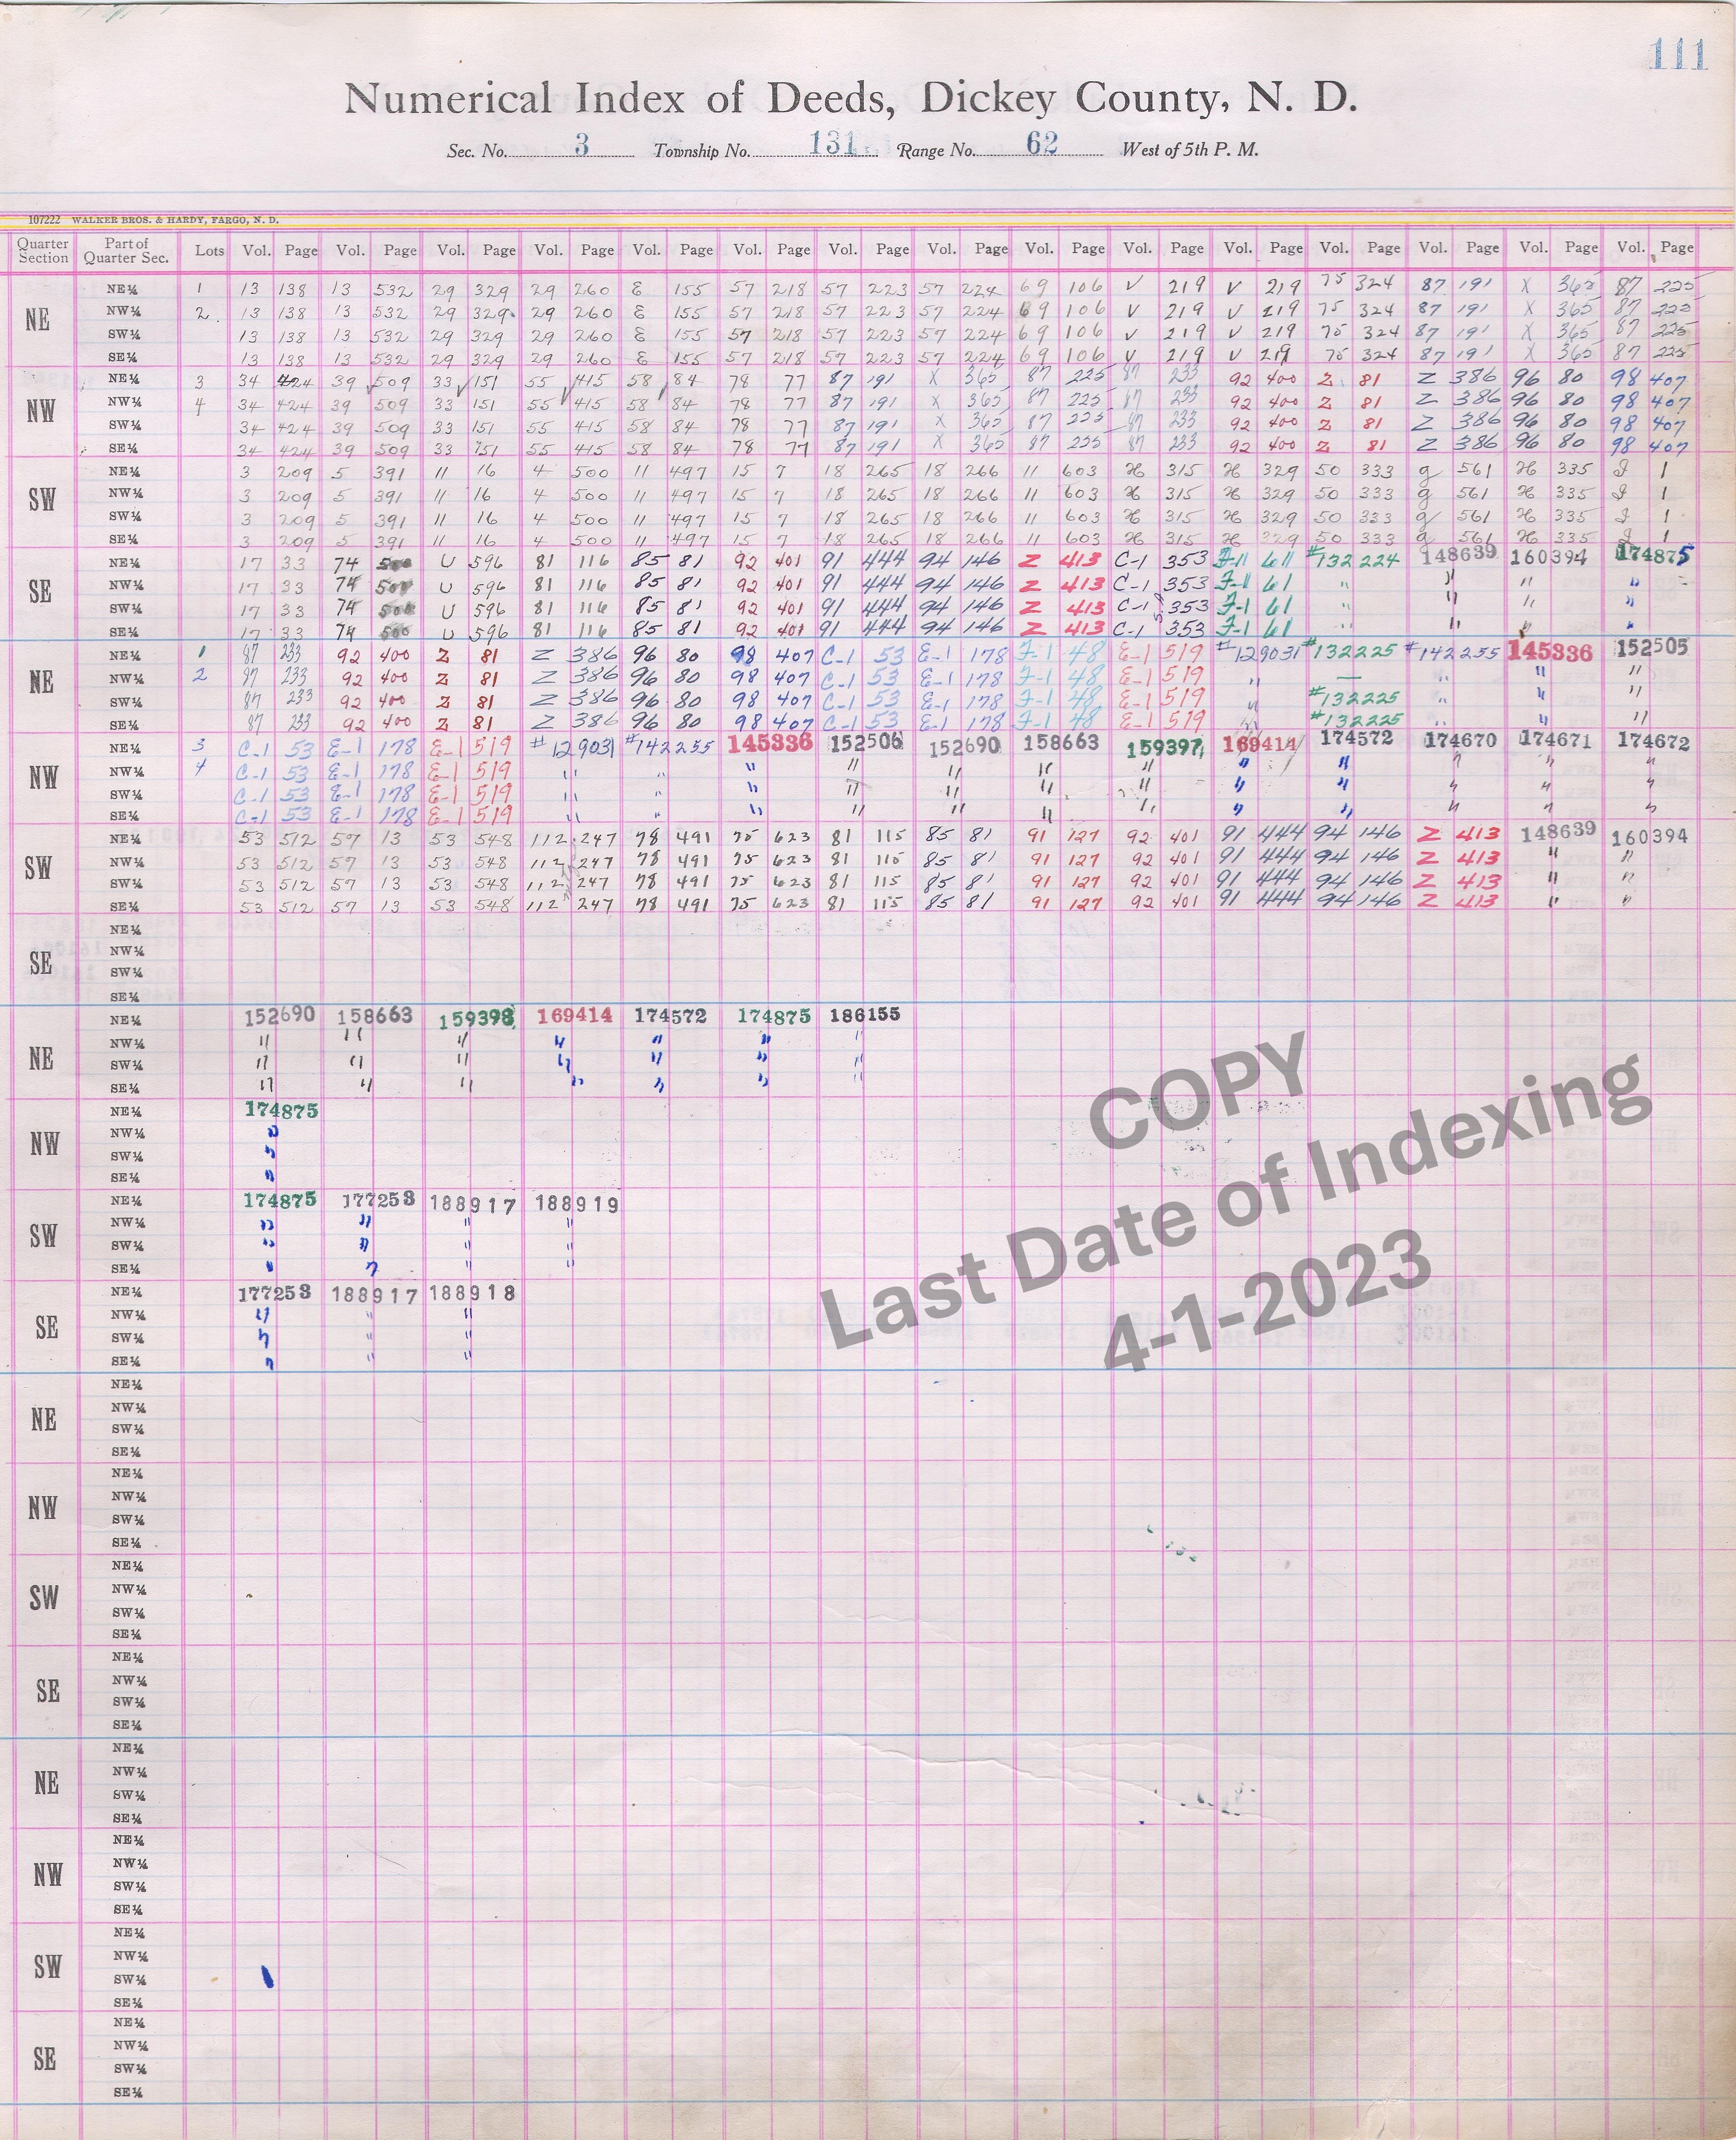 111
Numerical Index of Deeds, Dickey County, N. D.
Sec. No. 3 Township No. 131 Range No. 62 West of 5th P. M.
107222 WALKER BROS. & HARDY, FARGO, N. D.
Quarter Section Part of Quarter Sec. Lots Vol. Page Vol. Page Vol. Page Vol. Page Vol. Page Vol. Page Vol. Page Vol. Page Vol. Page Vol. Page Vol. Page Vol. Page Vol. Page Vol. Page Vol. Page
NE
NE¼ 1 13 138 13 532 29 329 29 260 E 155 57 218 57 223 57 224 69 106 V 219 V 219 75 324 87 191 X 365 87 225
NW¼ 2 13 138 13 532 29 329 29 260 E 155 57 218 57 223 57 224 69 106 V 219 V 219 75 324 87 191 X 365 87 225
SW¼ 13 138 13 532 29 329 29 260 E 155 57 218 57 223 57 224 69 106 V 219 V 219 75 324 87 191 X 365 87 225
SE¼ 13 138 13 532 29 329 29 260 E 155 57 218 57 223 57 224 69 106 V 219 V 219 75 324 87 191 X 365 87 225
NW
NE¼ 3 34 424 39 509 33 151 55 415 58 84 78 77 87 191 X 365 87 225 87 233 92 400 Z 81 Z 386 96 80 98 407
NW¼ 4 34 424 39 509 33 151 55 415 58 84 78 77 87 191 X 365 87 225 87 233 92 400 Z 81 Z 386 96 80 98 407
SW¼ 34 424 39 509 33 151 55 415 58 84 78 77 87 191 X 365 87 225 87 233 92 400 Z 81 Z 386 96 80 98 407
SE¼ 34 424 39 509 33 151 55 415 58 84 78 77 87 191 X 365 87 225 87 233 92 400 Z 81 Z 386 96 80 98 407
SW
NE¼ 3 209 5 391 11 16 4 500 11 497 15 7 18 265 18 266 11 603 H 315 H 329 50 333 g 561 H 335 I 1
NW¼ 3 209 5 391 11 16 4 500 11 497 15 7 18 265 18 266 11 603 H 315 H 329 50 333 g 561 H 335 I 1
SW¼ 3 209 5 391 11 16 4 500 11 497 15 7 18 265 18 266 11 603 H 315 H 329 50 333 g 561 H 335 I 1
SE¼ 3 209 5 391 11 16 4 500 11 497 15 7 18 265 18 266 11 603 H 315 H 329 50 333 g 561 H 335 I 1
SE
NE¼ 17 33 74 500 U 596 81 116 85 81 92 401 91 444 94 146 Z 413 C-1 353 F-1 61 #132224 148639 160394 174875
NW¼ 17 33 74 500 U 596 81 116 85 81 92 401 91 444 94 146 Z 413 C-1 353 F-1 61 " " " "
SW¼ 17 33 74 500 U 596 81 116 85 81 92 401 91 444 94 146 Z 413 C-1 353 F-1 61 " " " "
SE¼ 17 33 74 500 U 596 81 116 85 81 92 401 91 444 94 146 Z 413 C-1 353 F-1 61 " " " "
NE
NE¼ 1 87 233 92 400 Z 81 Z 386 96 80 98 407 C-1 53 E-1 178 F-1 48 E-1 519 #129031 #132225 #142255 145336 152505
NW¼ 2 87 233 92 400 Z 81 Z 386 96 80 98 407 C-1 53 E-1 178 F-1 48 E-1 519 " — " " "
SW¼ 87 233 92 400 Z 81 Z 386 96 80 98 407 C-1 53 E-1 178 F-1 48 E-1 519 " #132225 " " "
SE¼ 87 233 92 400 Z 81 Z 386 96 80 98 407 C-1 53 E-1 178 F-1 48 E-1 519 " #132225 " " "
NW
NE¼ 3 C-1 53 E-1 178 E-1 519 #129031 #142255 145336 152506 152690 158663 159397 169414 174572 174670 174671 174672
NW¼ 4 C-1 53 E-1 178 E-1 519 " " " " " " " " " " " "
SW¼ C-1 53 E-1 178 E-1 519 " " " " " " " " " " " "
SE¼ C-1 53 E-1 178 E-1 519 " " " " " " " " " " " "
SW
NE¼ 53 512 57 13 53 548 112 247 78 491 75 623 81 115 85 81 91 127 92 401 91 444 94 146 Z 413 148639 160394
NW¼ 53 512 57 13 53 548 112 247 78 491 75 623 81 115 85 81 91 127 92 401 91 444 94 146 Z 413 " "
SW¼ 53 512 57 13 53 548 112 247 78 491 75 623 81 115 85 81 91 127 92 401 91 444 94 146 Z 413 " "
SE¼ 53 512 57 13 53 548 112 247 78 491 75 623 81 115 85 81 91 127 92 401 91 444 94 146 Z 413 " "
SE
NE¼
NW¼
SW¼
SE¼
NE
NE¼ 152690 158663 159398 169414 174572 174875 186155
NW¼ " " " " " " "
SW¼ " " " " " " "
SE¼ " " " " " " "
NW
NE¼ 174875
NW¼ "
SW¼ "
SE¼ "
SW
NE¼ 174875 177253 188917 188919
NW¼ " " " "
SW¼ " " " "
SE¼ " " " "
SE
NE¼ 177253 188917 188918
NW¼ " " "
SW¼ " " "
SE¼ " " "
COPY
Last Date of Indexing
4-1-2023
NE
NE¼
NW¼
SW¼
SE¼
NW
NE¼
NW¼
SW¼
SE¼
SW
NE¼
NW¼
SW¼
SE¼
SE
NE¼
NW¼
SW¼
SE¼
NE
NE¼
NW¼
SW¼
SE¼
NW
NE¼
NW¼
SW¼
SE¼
SW
NE¼
NW¼
SW¼
SE¼
SE
NE¼
NW¼
SW¼
SE¼